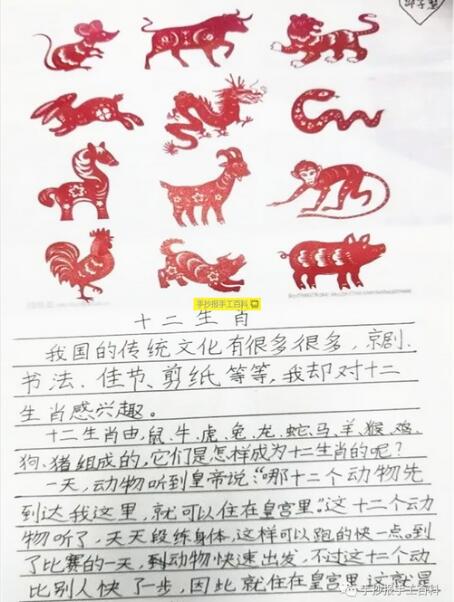 手抄报手工百科
十二生肖
我国的传统文化有很多很多，京剧、
书法、佳节、剪纸等等，我却对十二
生肖感兴趣。
十二生肖由，鼠、牛、虎、兔、龙、蛇、马、羊、猴、鸡、
狗、猪组成的，它们是怎样成为十二生肖的呢？
一天，动物听到皇帝说：“哪十二个动物先
到达我这里，就可以住在皇宫里。”这十二个动
物听了，天天段练身体，这样可以跑的快一点。到
了比赛的一天，到动物快速出发，不过这十二个动
比别人快了一步，因此就住在皇宫里，这就是
手抄报手工百科